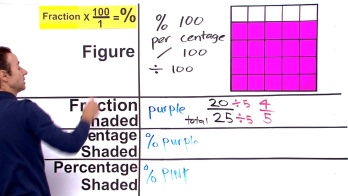 Fraction x 100/1 = %
% 100
per centage
/ 100
÷ 100
Figure
Fraction Shaded
purple
total
20/25 ÷5/÷5 4/5
centage Shaded
% Purple
Percentage Shaded
% PINK